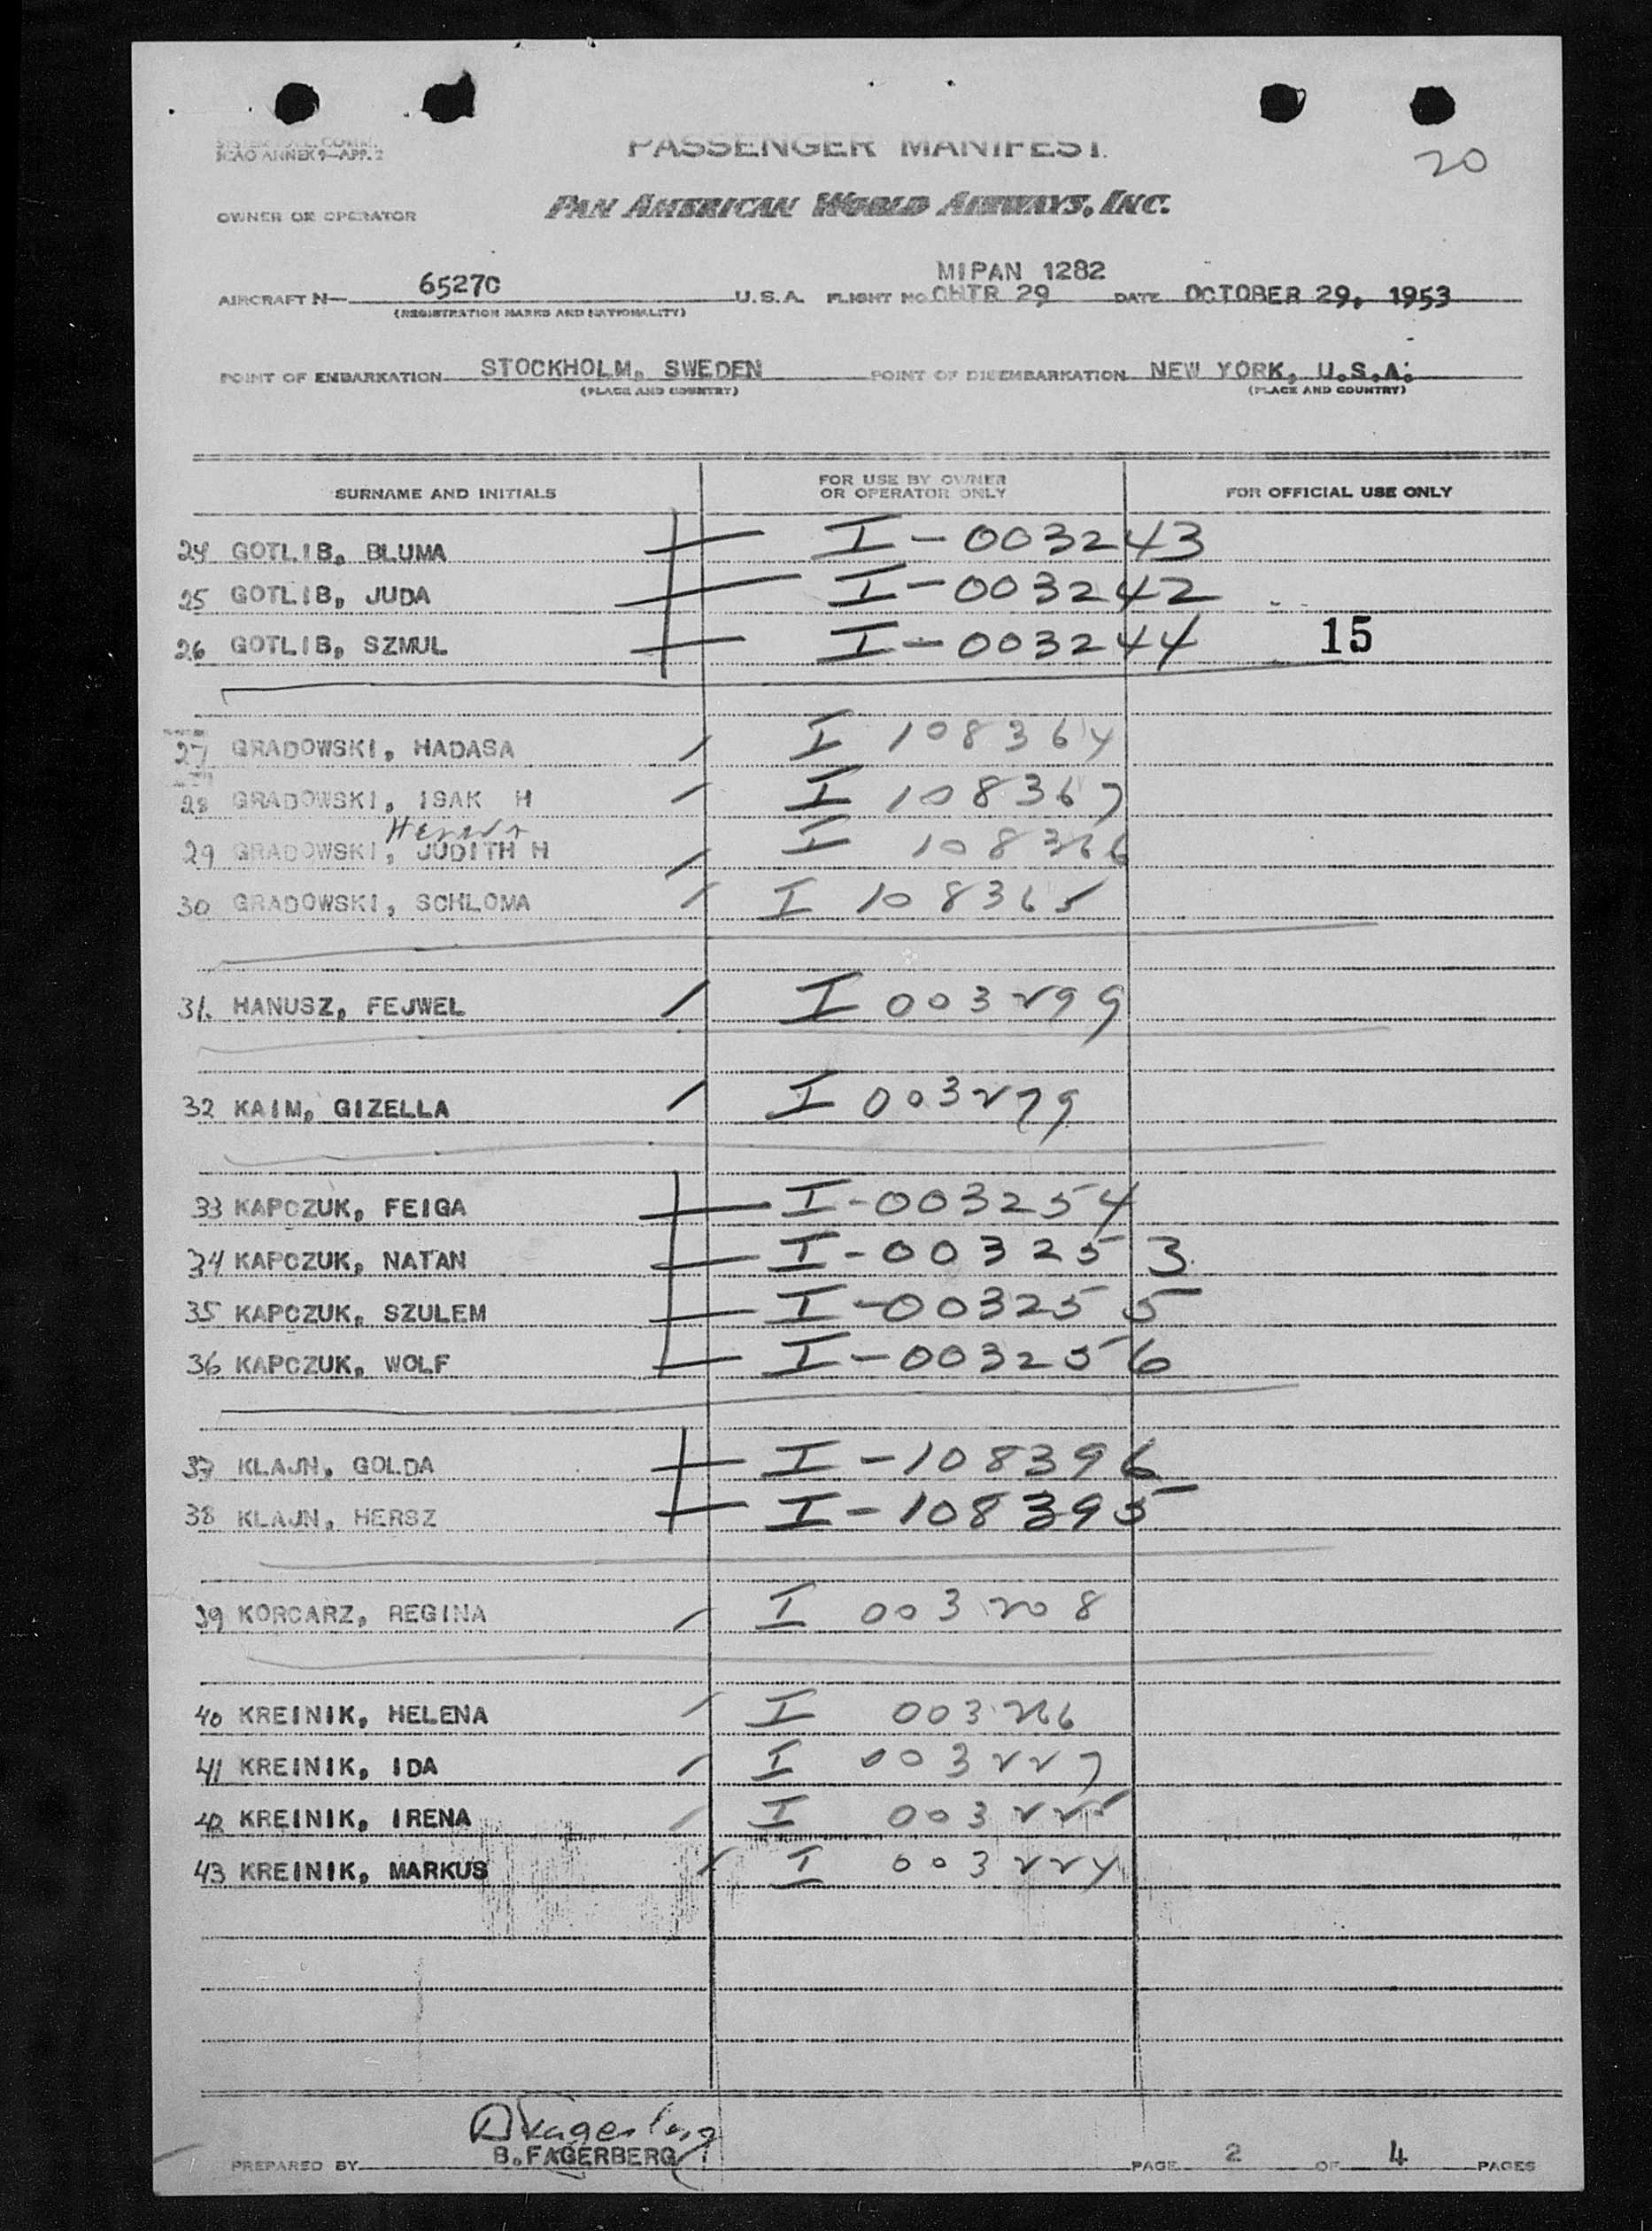 ICAO ANNEX 9—APP. 2
PASSENGER MANIFEST
20
OWNER OR OPERATOR
PAN AMERICAN WORLD AIRWAYS, INC.
MIPAN 1282
AIRCRAFT N— 65270 U.S.A. FLIGHT NO. CHTR 29 DATE OCTOBER 29, 1953
(REGISTRATION MARKS AND NATIONALITY)
POINT OF EMBARKATION STOCKHOLM, SWEDEN POINT OF DISEMBARKATION NEW YORK, U.S.A.
(PLACE AND COUNTRY) (PLACE AND COUNTRY)
SURNAME AND INITIALS FOR USE BY OWNER OR OPERATOR ONLY FOR OFFICIAL USE ONLY
24 GOTLIB, BLUMA I-003243
25 GOTLIB, JUDA I-003242
26 GOTLIB, SZMUL I-003244 15
27 GRADOWSKI, HADASA I 108364
28 GRADOWSKI, ISAK H I 108367
29 GRADOWSKI, JUDITH H I 108366
30 GRADOWSKI, SCHLOMA I 108365
31. HANUSZ, FEJWEL I 003299
32 KAIM, GIZELLA I 003279
33 KAPCZUK, FEIGA I-003254
34 KAPCZUK, NATAN I-003253
35 KAPCZUK, SZULEM I-003255
36 KAPCZUK, WOLF I-003256
37 KLAJN, GOLDA I-108396
38 KLAJN, HERSZ I-108395
39 KORCARZ, REGINA I 003208
40 KREINIK, HELENA I
41 KREINIK, IDA I 003227
42 KREINIK, IRENA I 003225
43 KREINIK, MARKUS I 003224
B. FAGERBERG
PREPARED BY PAGE 2 OF 4 PAGES